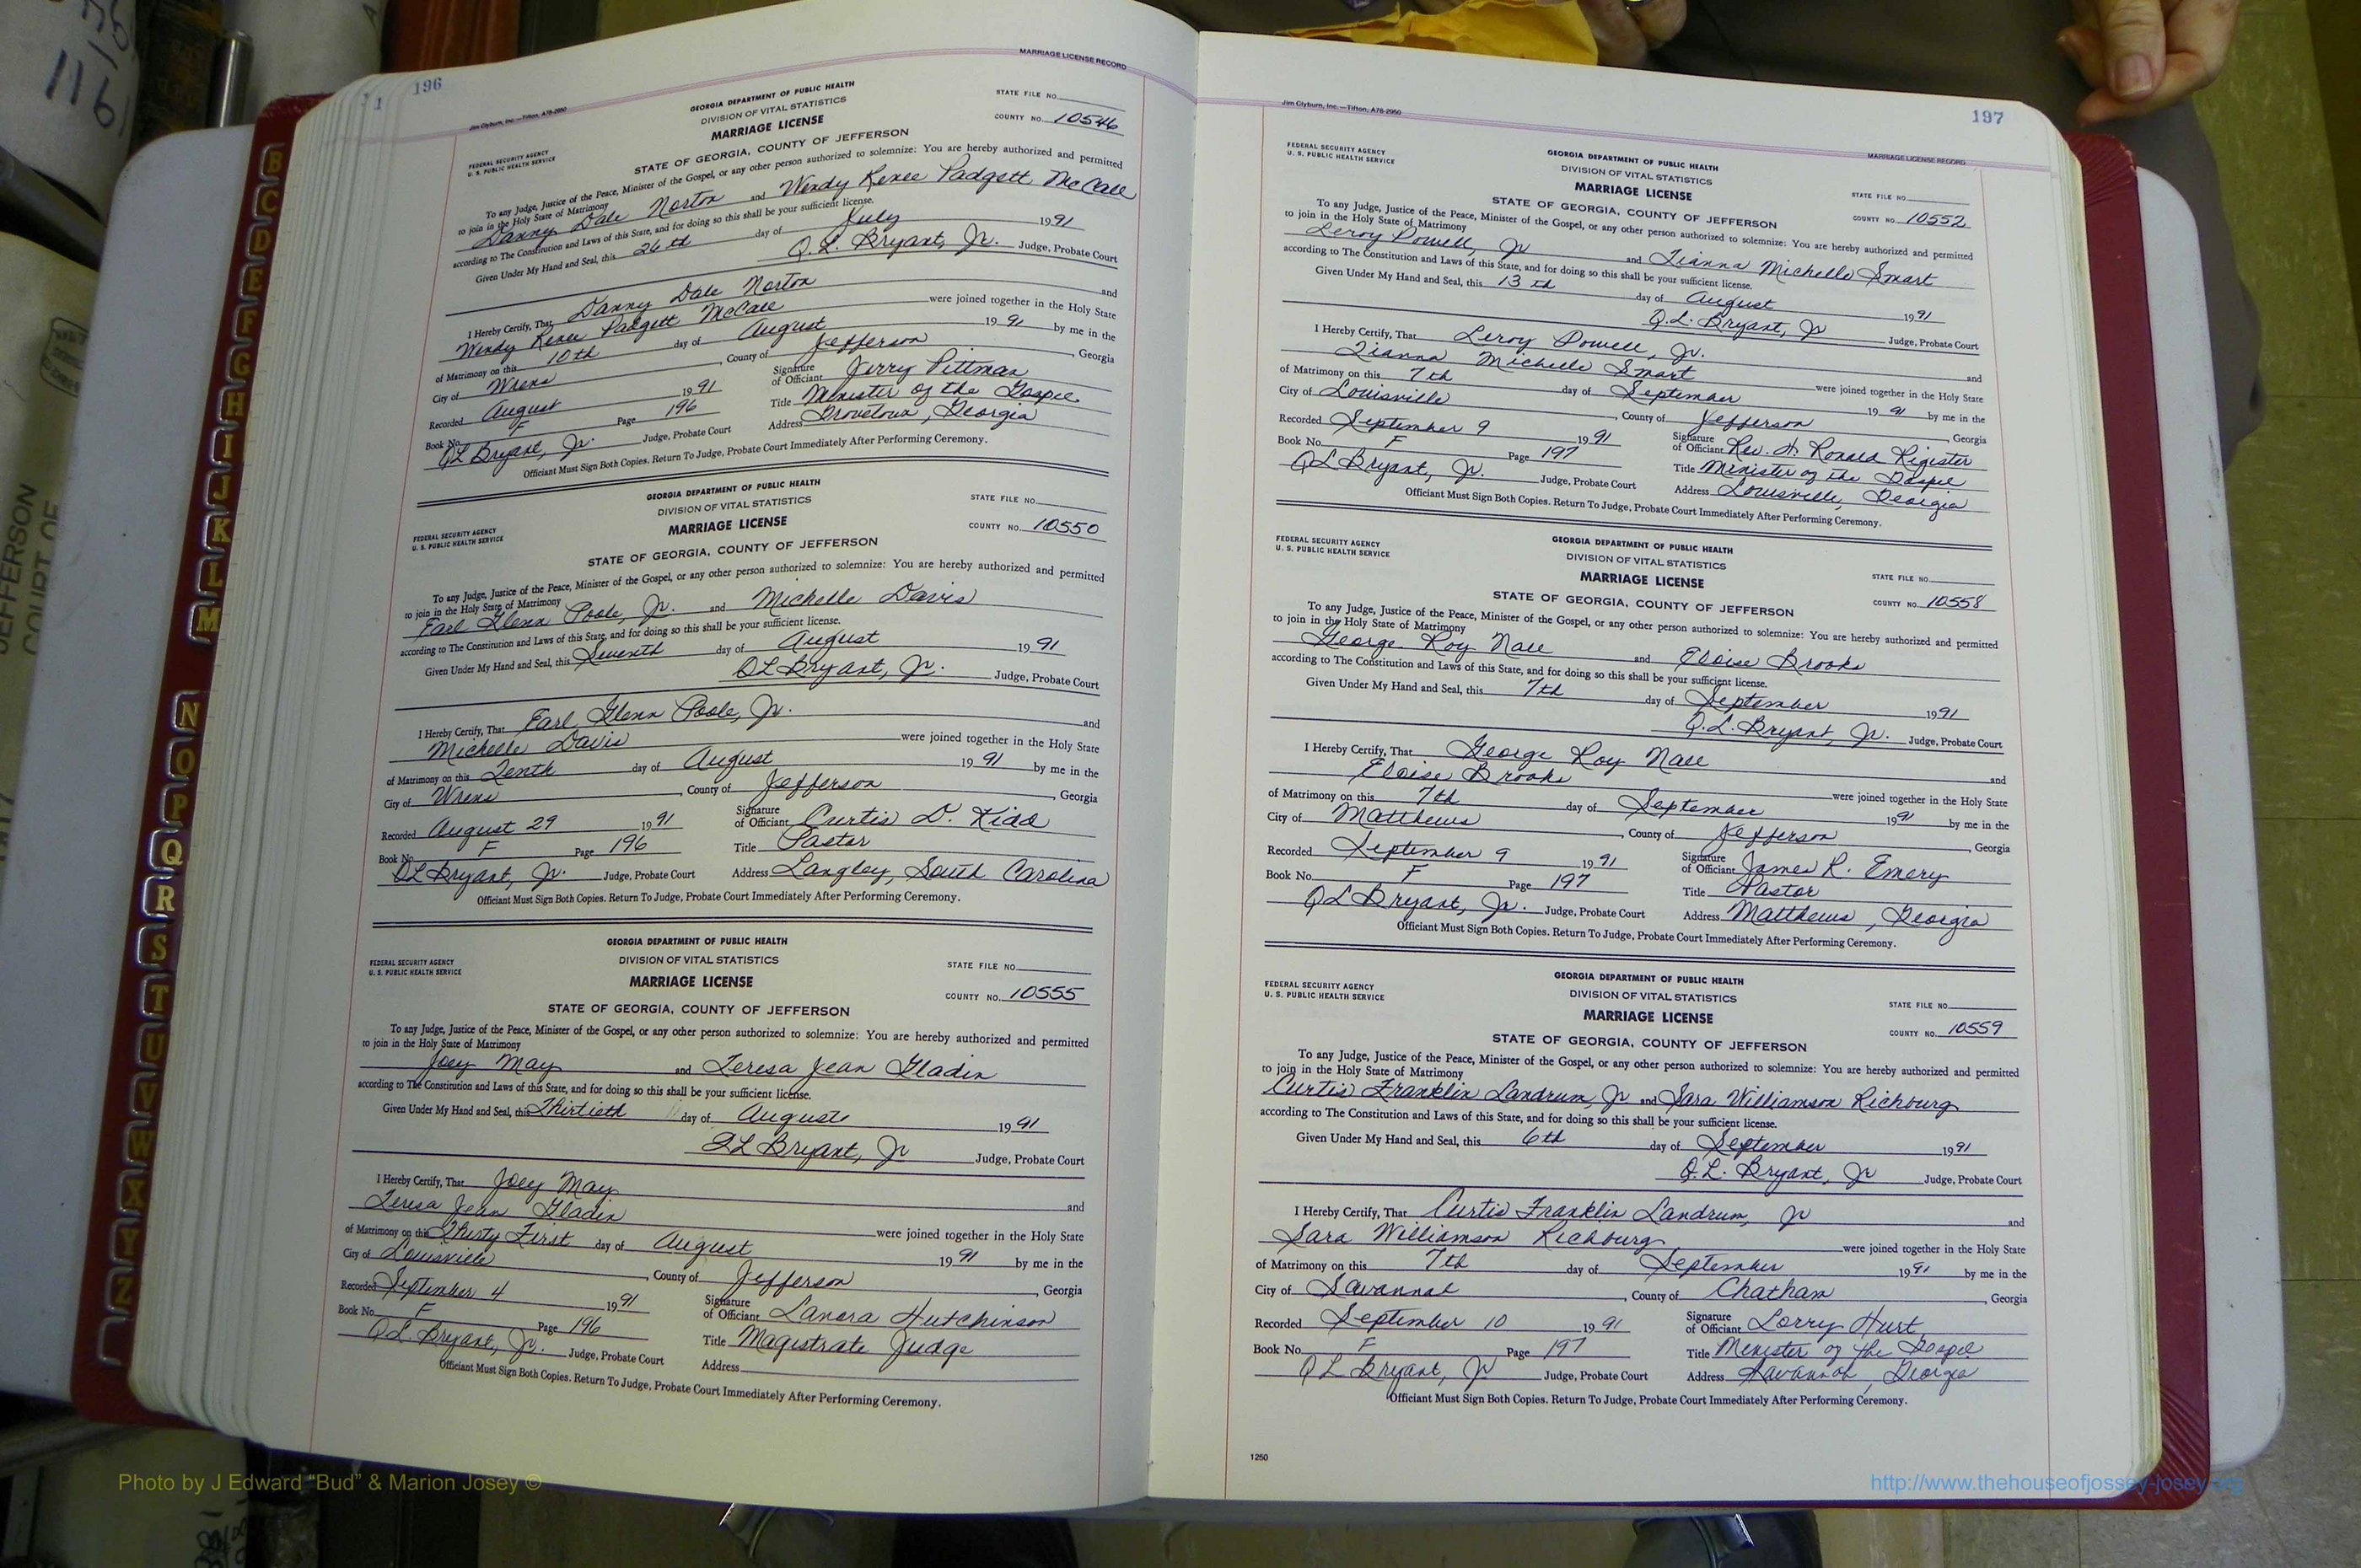 196
MARRIAGE LICENSE RECORD
Jim Clyburn, Inc.—Tifton, A78-2950
GEORGIA DEPARTMENT OF PUBLIC HEALTH
DIVISION OF VITAL STATISTICS
MARRIAGE LICENSE
STATE FILE NO.
COUNTY NO. 10546
FEDERAL SECURITY AGENCY
U. S. PUBLIC HEALTH SERVICE
STATE OF GEORGIA, COUNTY OF JEFFERSON
To any Judge, Justice of the Peace, Minister of the Gospel, or any other person authorized to solemnize: You are hereby authorized and permitted
to join in the Holy State of Matrimony
Danny Dale Norton and Wendy Renee Padgett McCall
according to The Constitution and Laws of this State, and for doing so this shall be your sufficient license.
Given Under My Hand and Seal, this 26th day of July 1991
Q.L. Bryant, Jr. Judge, Probate Court
I Hereby Certify, That Danny Dale Norton and
Wendy Renee Padgett McCall were joined together in the Holy State
of Matrimony on this 10th day of August 1991 by me in the
City of Wrens, County of Jefferson, Georgia
Recorded August 1991 Signature of Officiant Jerry Pittman
Book No. F Page 196 Title Minister of the Gospel
QL Bryant, Jr. Judge, Probate Court Address Grovetown, Georgia
Officiant Must Sign Both Copies. Return To Judge, Probate Court Immediately After Performing Ceremony.
GEORGIA DEPARTMENT OF PUBLIC HEALTH
DIVISION OF VITAL STATISTICS
MARRIAGE LICENSE
STATE FILE NO.
COUNTY NO. 10550
FEDERAL SECURITY AGENCY
U. S. PUBLIC HEALTH SERVICE
STATE OF GEORGIA, COUNTY OF JEFFERSON
To any Judge, Justice of the Peace, Minister of the Gospel, or any other person authorized to solemnize: You are hereby authorized and permitted
to join in the Holy State of Matrimony
Earl Glenn Poole, Jr. and Michelle Davis
according to The Constitution and Laws of this State, and for doing so this shall be your sufficient license.
Given Under My Hand and Seal, this Seventh day of August 1991
QL Bryant, Jr. Judge, Probate Court
I Hereby Certify, That Earl Glenn Poole, Jr. and
Michelle Davis were joined together in the Holy State
of Matrimony on this Tenth day of August 1991 by me in the
City of Wrens, County of Jefferson, Georgia
Recorded August 29 1991 Signature of Officiant Curtis D. Kidd
Book No. F Page 196 Title Pastor
QL Bryant, Jr. Judge, Probate Court Address Langley, South Carolina
Officiant Must Sign Both Copies. Return To Judge, Probate Court Immediately After Performing Ceremony.
GEORGIA DEPARTMENT OF PUBLIC HEALTH
DIVISION OF VITAL STATISTICS
MARRIAGE LICENSE
STATE FILE NO.
COUNTY NO. 10555
FEDERAL SECURITY AGENCY
U. S. PUBLIC HEALTH SERVICE
STATE OF GEORGIA, COUNTY OF JEFFERSON
To any Judge, Justice of the Peace, Minister of the Gospel, or any other person authorized to solemnize: You are hereby authorized and permitted
to join in the Holy State of Matrimony
Joey May and Teresa Jean Gladin
according to The Constitution and Laws of this State, and for doing so this shall be your sufficient license.
Given Under My Hand and Seal, this Thirtieth day of August 1991
QL Bryant, Jr Judge, Probate Court
I Hereby Certify, That Joey May and
Teresa Jean Gladin were joined together in the Holy State
of Matrimony on this Thirty First day of August 1991 by me in the
City of Louisville, County of Jefferson, Georgia
Recorded September 4 1991 Signature of Officiant Lanora Hutchinson
Book No. F Page 196 Title Magistrate Judge
Q.L. Bryant, Jr. Judge, Probate Court Address
Officiant Must Sign Both Copies. Return To Judge, Probate Court Immediately After Performing Ceremony.
197
Jim Clyburn, Inc.—Tifton, A78-2950
MARRIAGE LICENSE RECORD
FEDERAL SECURITY AGENCY
U. S. PUBLIC HEALTH SERVICE
GEORGIA DEPARTMENT OF PUBLIC HEALTH
DIVISION OF VITAL STATISTICS
MARRIAGE LICENSE
STATE OF GEORGIA, COUNTY OF JEFFERSON
STATE FILE NO.
COUNTY NO. 10552
To any Judge, Justice of the Peace, Minister of the Gospel, or any other person authorized to solemnize: You are hereby authorized and permitted
to join in the Holy State of Matrimony
Leroy Powell, Jr and Tianna Michelle Smart
according to The Constitution and Laws of this State, and for doing so this shall be your sufficient license.
Given Under My Hand and Seal, this 13th day of August 1991
Q.L. Bryant, Jr Judge, Probate Court
I Hereby Certify, That Leroy Powell, Jr. and
Tianna Michelle Smart were joined together in the Holy State
of Matrimony on this 7th day of September 1991 by me in the
City of Louisville, County of Jefferson, Georgia
Recorded September 9 1991 Signature of Officiant Rev. A. Ronald Rigister
Book No. F Page 197 Title Minister of the Gospel
QL Bryant, Jr. Judge, Probate Court Address Louisville, Georgia
Officiant Must Sign Both Copies. Return To Judge, Probate Court Immediately After Performing Ceremony.
FEDERAL SECURITY AGENCY
U. S. PUBLIC HEALTH SERVICE
GEORGIA DEPARTMENT OF PUBLIC HEALTH
DIVISION OF VITAL STATISTICS
MARRIAGE LICENSE
STATE OF GEORGIA, COUNTY OF JEFFERSON
STATE FILE NO.
COUNTY NO. 10558
To any Judge, Justice of the Peace, Minister of the Gospel, or any other person authorized to solemnize: You are hereby authorized and permitted
to join in the Holy State of Matrimony
George Roy Nall and Eloise Brooks
according to The Constitution and Laws of this State, and for doing so this shall be your sufficient license.
Given Under My Hand and Seal, this 7th day of September 1991
Q.L. Bryant, Jr. Judge, Probate Court
I Hereby Certify, That George Roy Nall and
Eloise Brooks were joined together in the Holy State
of Matrimony on this 7th day of September 1991 by me in the
City of Matthews, County of Jefferson, Georgia
Recorded September 9 1991 Signature of Officiant James R. Emery
Book No. F Page 197 Title Pastor
QL Bryant, Jr. Judge, Probate Court Address Matthews, Georgia
Officiant Must Sign Both Copies. Return To Judge, Probate Court Immediately After Performing Ceremony.
FEDERAL SECURITY AGENCY
U. S. PUBLIC HEALTH SERVICE
GEORGIA DEPARTMENT OF PUBLIC HEALTH
DIVISION OF VITAL STATISTICS
MARRIAGE LICENSE
STATE OF GEORGIA, COUNTY OF JEFFERSON
STATE FILE NO.
COUNTY NO. 10559
To any Judge, Justice of the Peace, Minister of the Gospel, or any other person authorized to solemnize: You are hereby authorized and permitted
to join in the Holy State of Matrimony
Curtis Franklin Landrum, Jr and Sara Williamson Richburg
according to The Constitution and Laws of this State, and for doing so this shall be your sufficient license.
Given Under My Hand and Seal, this 6th day of September 1991
Q.L. Bryant, Jr Judge, Probate Court
I Hereby Certify, That Curtis Franklin Landrum, Jr and
Sara Williamson Richburg were joined together in the Holy State
of Matrimony on this 7th day of September 1991 by me in the
City of Savannah, County of Chatham, Georgia
Recorded September 10 1991 Signature of Officiant Lorry Hurt
Book No. F Page 197 Title Minister of the Gospel
QL Bryant, Jr Judge, Probate Court Address Savannah, Georgia
Officiant Must Sign Both Copies. Return To Judge, Probate Court Immediately After Performing Ceremony.
1250
B
C
D
E
F
G
H
I
J
K
L
M
N
O
P
Q
R
S
T
U
V
W
X
Y
Z
JEFFERSON
COURT OF
Photo by J Edward “Bud” & Marion Josey ©
http://www.thehouseofjossey-josey.org